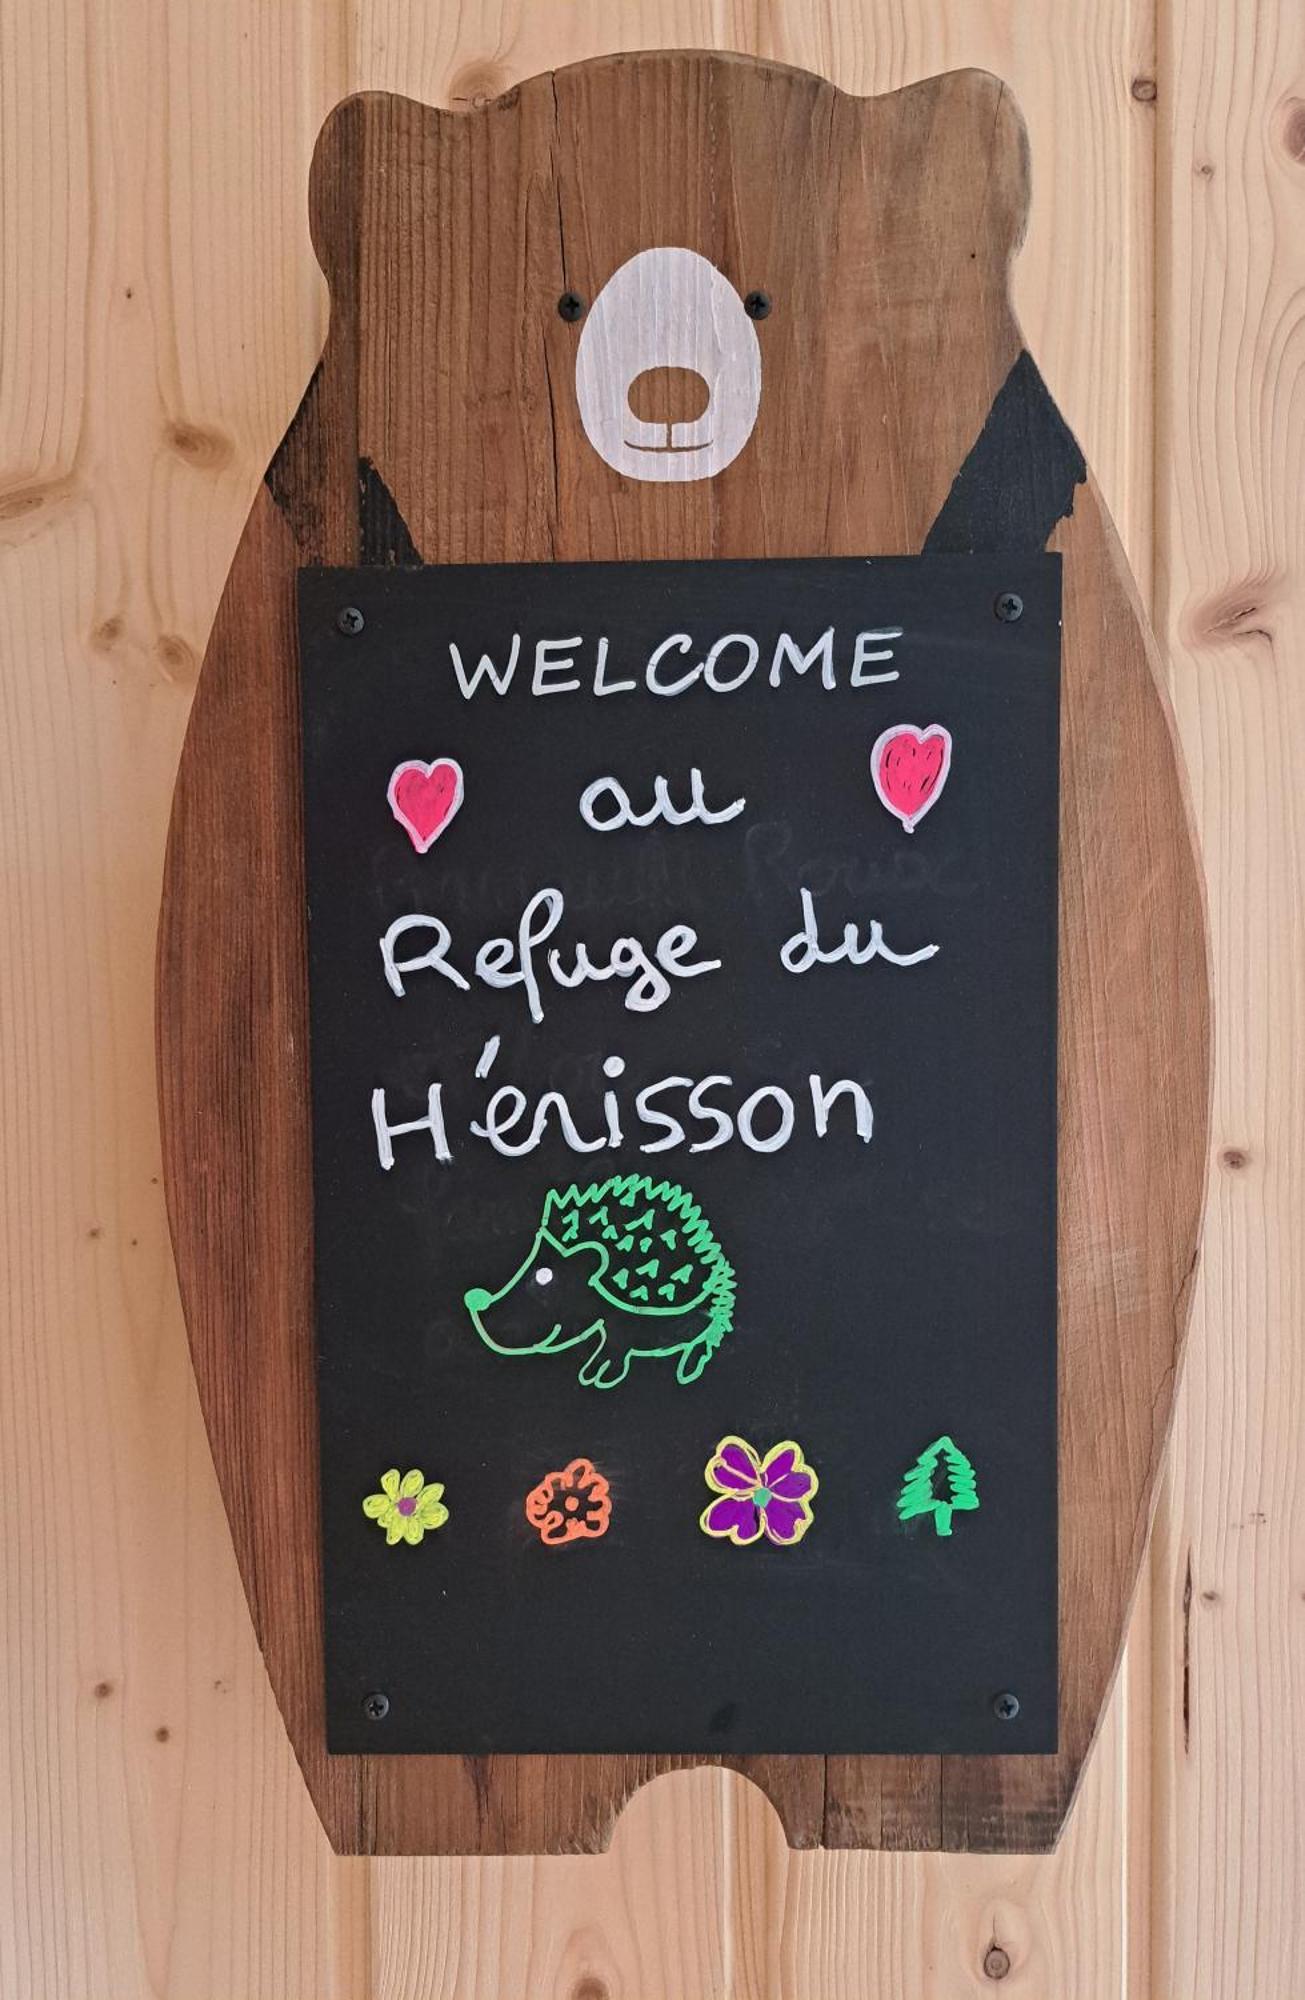 WELCOME
au
Refuge du
Hérisson